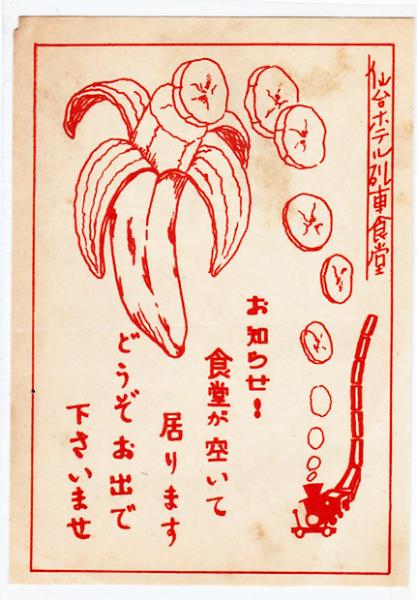 仙台ホテル列車食堂
お知らせ!
食堂が空いて
居ります
どうぞお出で
下さいませ